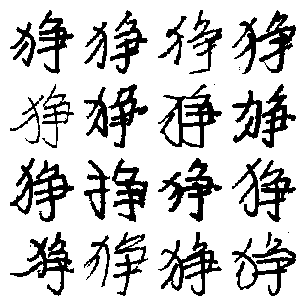 狰狰狰狰
狰狰狰狰
狰狰狰狰
狰狰狰狰